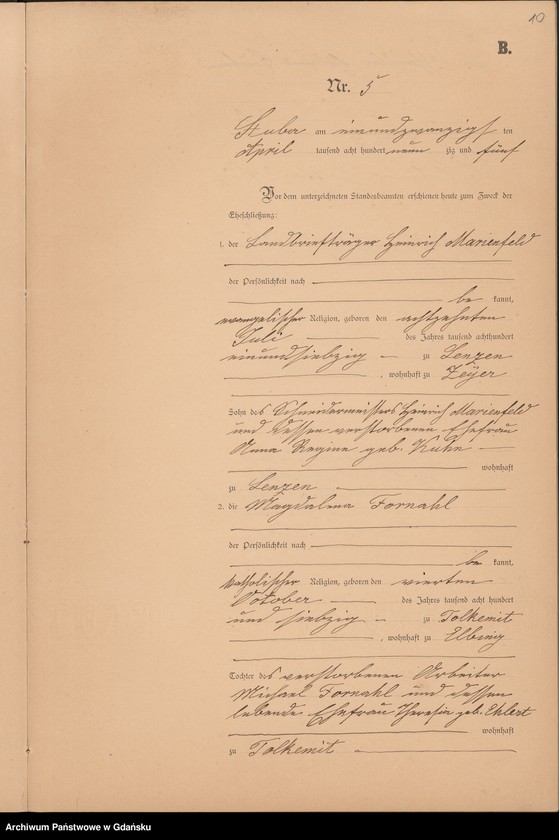 10
B.
Nr. 5
Stuba am einundzwanzigsten
April tausend acht hundert neunzig und fünf
Vor dem unterzeichneten Standesbeamten erschienen heute zum Zweck der
Eheschließung:
1. der Landbriefträger Heinrich Marienfeld
der Persönlichkeit nach
bekannt,
evangelischer Religion, geboren den achtzehnten
Juli des Jahres tausend achthundert
einundsiebzig zu Lenzen
, wohnhaft zu Zeyer
Sohn des Schneidermeisters Heinrich Marienfeld
und dessen verstorbenen Ehefrau
Anna Regine geb. Kuhn
wohnhaft
zu Lenzen
2. die Magdalena Fornahl
der Persönlichkeit nach
bekannt,
katholischer Religion, geboren den vierten
October des Jahres tausend acht hundert
und siebzig zu Tolkemit
, wohnhaft zu Elbing
Tochter des verstorbenen Arbeiter
Michael Fornahl und dessen
lebende Ehefrau Theresia geb. Ehlert
wohnhaft
zu Tolkemit
Archiwum Państwowe w Gdańsku